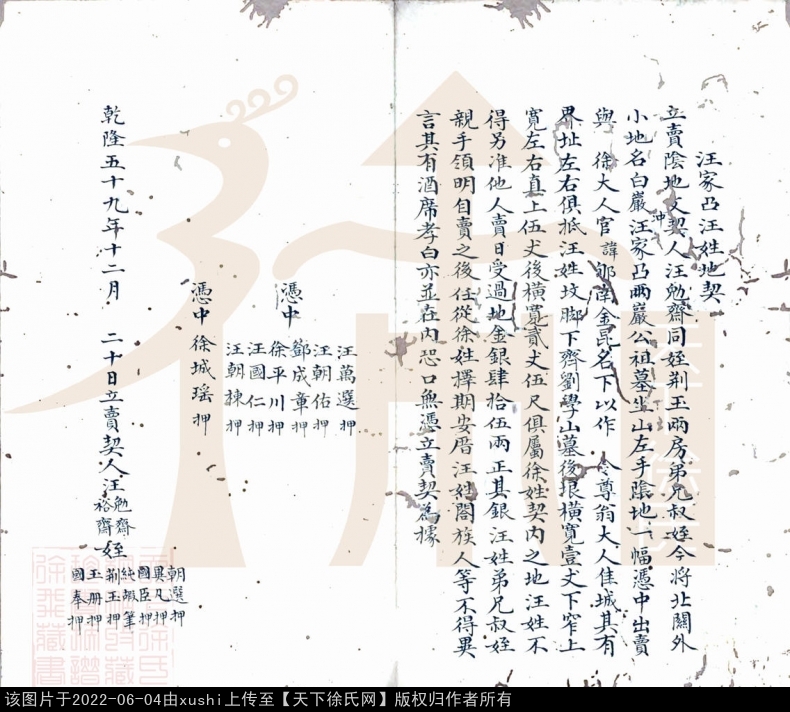 汪家凸汪姓地契
立賣陰地文契人汪勉齋同姪荊玉兩房弟兄叔姪今將北關外
小地名白巖沖汪家凸兩巖公祖墓坐山左手陰地一幅憑中出賣
與 徐大人官諱 南金昆名下以作 令尊翁大人佳城其有
界址左右俱抵汪姓坟脚下齊劉學山墓後垠橫寬壹丈下窄上
寬左右直上伍丈後橫寬貳丈伍尺俱屬徐姓契內之地汪姓不
得另准他人賣日受過地金銀肆拾伍兩正其銀汪姓弟兄叔姪
親手領明自賣之後任從徐姓擇期安厝汪姓閤族人等不得異
言其有酒席孝白亦並在內恐口無憑立賣契為據
汪萬選押
汪朝佑押
憑中 鄧成章押
徐平川押
汪國仁押
汪朝棟押
憑中徐城瑶押
乾隆五十九年十二月 二十日立賣契人汪勉齋 裕齋 姪
朝選押
異凡押
國臣押
純嘏筆
荊玉押
玉册押
國奉押
该图片于2022-06-04由xushi上传至【天下徐氏网】版权归作者所有